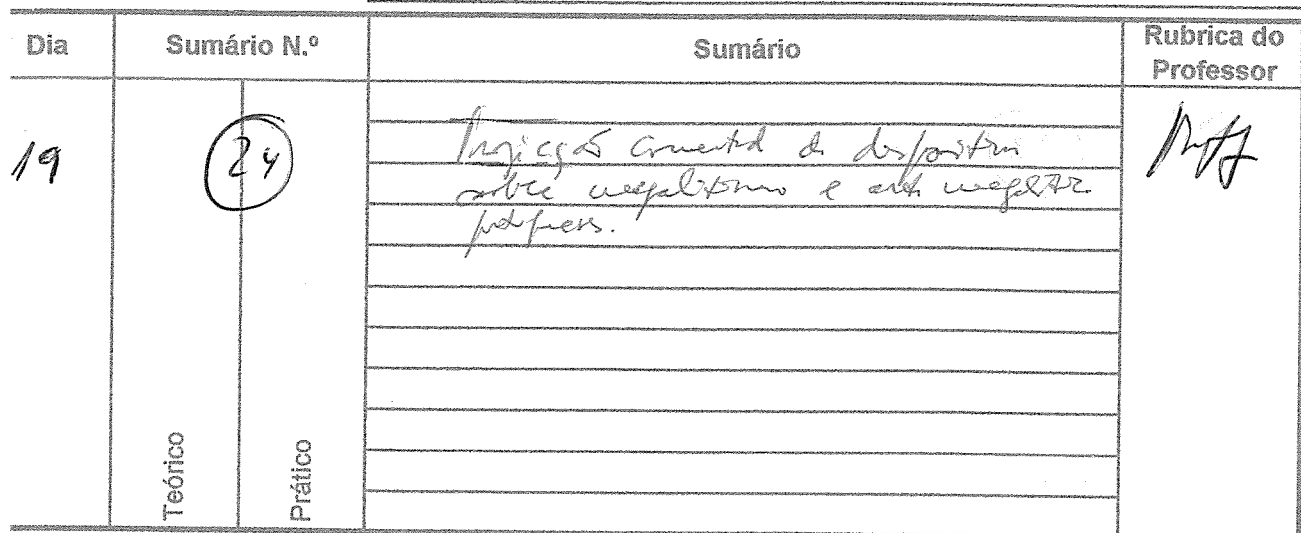 Dia Sumário N.º Sumário Rubrica do Professor
19 24 Projecção comentada de diapositivos
sobre megalitismo e arte megalítica
portuguesa.
Teórico Prático